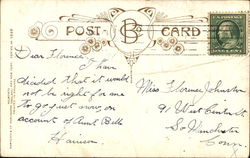 POST CARD
Dear Florence
I have
decided that it would
not be right for me
to go just now, on
account of Aunt Bell
Harrison
Miss Florence Johnston
91 West Center St
So. Manchester
Conn